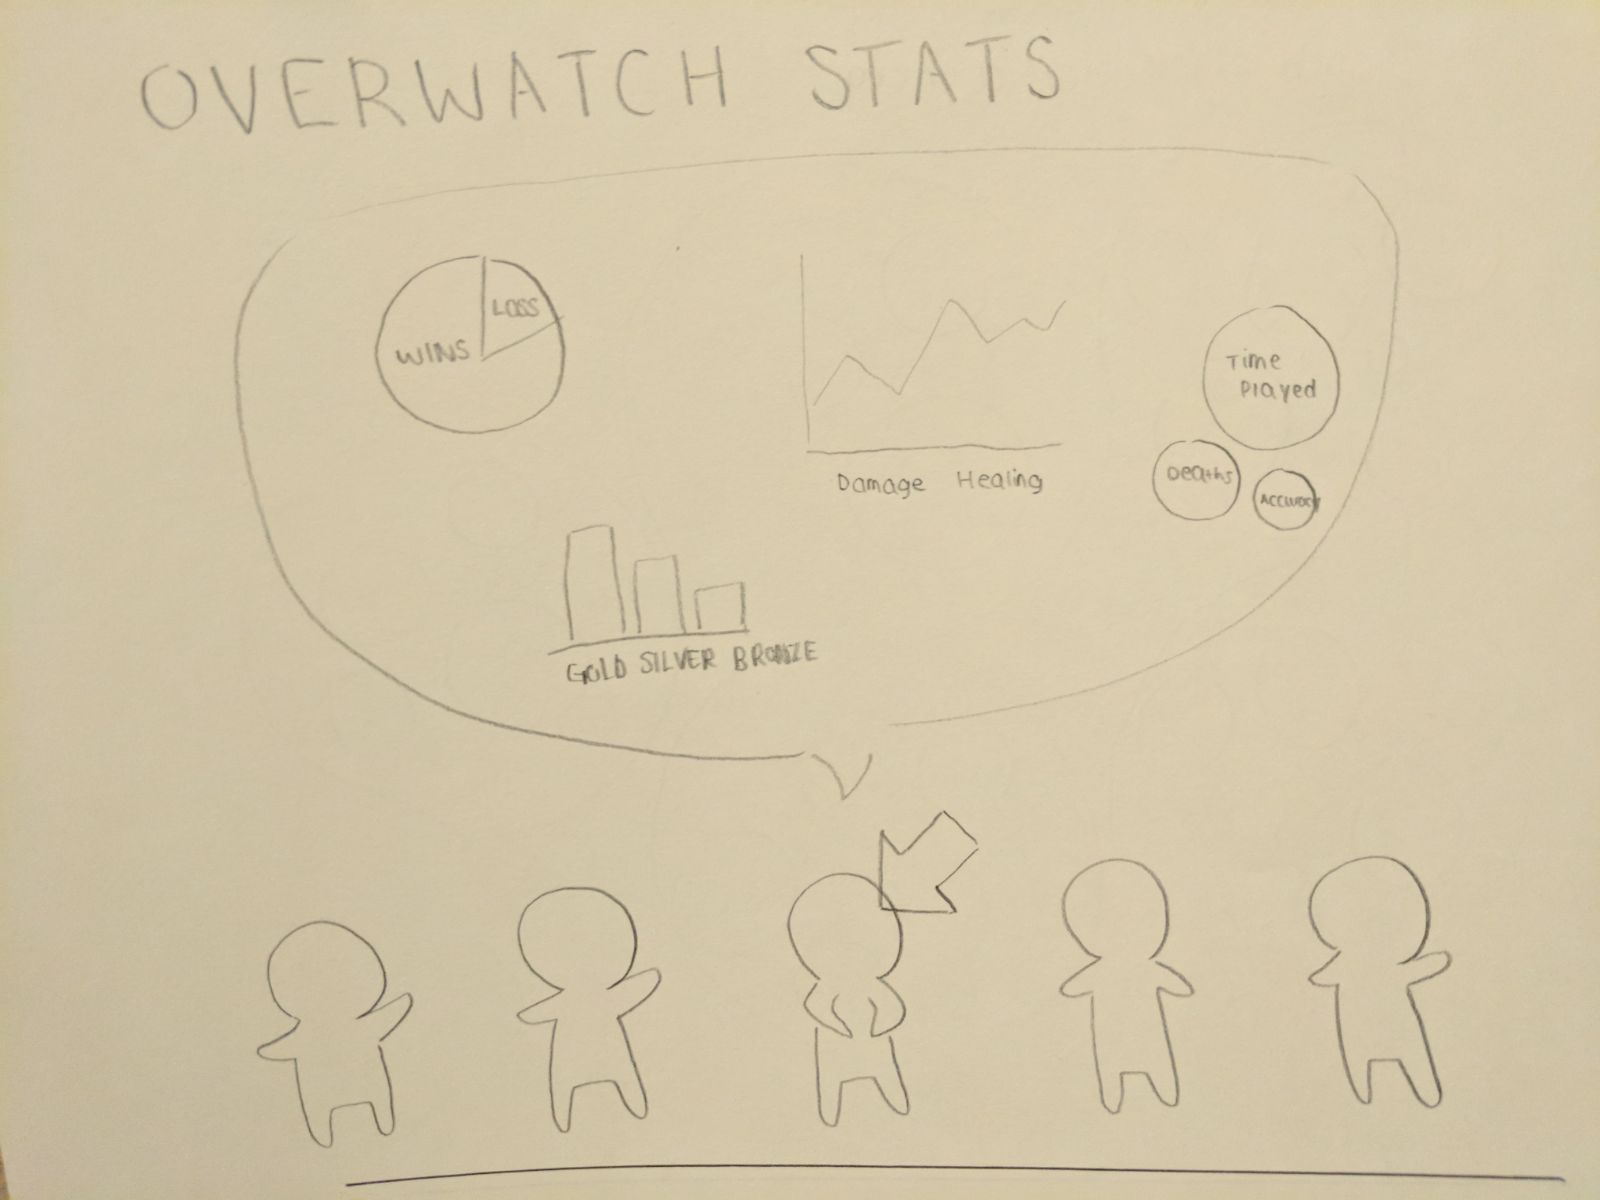 OVERWATCH STATS
WINS
LOSS
Damage Healing
Time
Played
Deaths
Accuracy
GOLD SILVER BRONZE